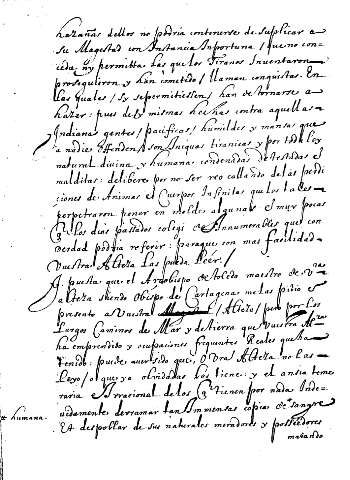 hazañas dellos no podria contenerse de suplicar a
su Magestad con Instancia Inportuna / que no con-
ceda ny permitta las que los Tiranos Inventaron
prosiguieron y han cometido / llaman conquistas. En
las quales / Sy se permitiessen / han de tornarse a
hazer: pues de sy mismas hechas contra aquellas
Indianas gentes / pacificas / humildes y mansas que
a nadie offenden / son Iniquas tiranicas y por toda ley
natural divina y humana condenadas detestadas e
malditas: delibere por no ser reo callando de las perdi-
ciones de Animas e Cuerpos Infinitas que los tales
perpetraran poner en molde algunas e muy pocas
q los dias pasados colegi de Innumerables que con
verdad podria referir: para que con mas facilidad
Vuestra Alteza las pueda leer /
Y puesto que el Arçobispo de toledo maestro de Vra
alteza siendo Obispo de Cartagena me las pidio e
presento a Vuestra / Alteza / pero por los
Largos Caminos de Mar y de tierra que Vuestra Alza
ha emprendido y ocupaciones frequentes Reales que ha
tenido: puede aver sido que, o Vra Alteza no las
Leyo / o que ya olvidadas las tiene: y el ansia teme
raria Irracional de los q tienen por nada Inde-
vidamente derramar tan Immensas copias de sangre
# humana.
Et despoblar de sus naturales moradores y posseedores
matando